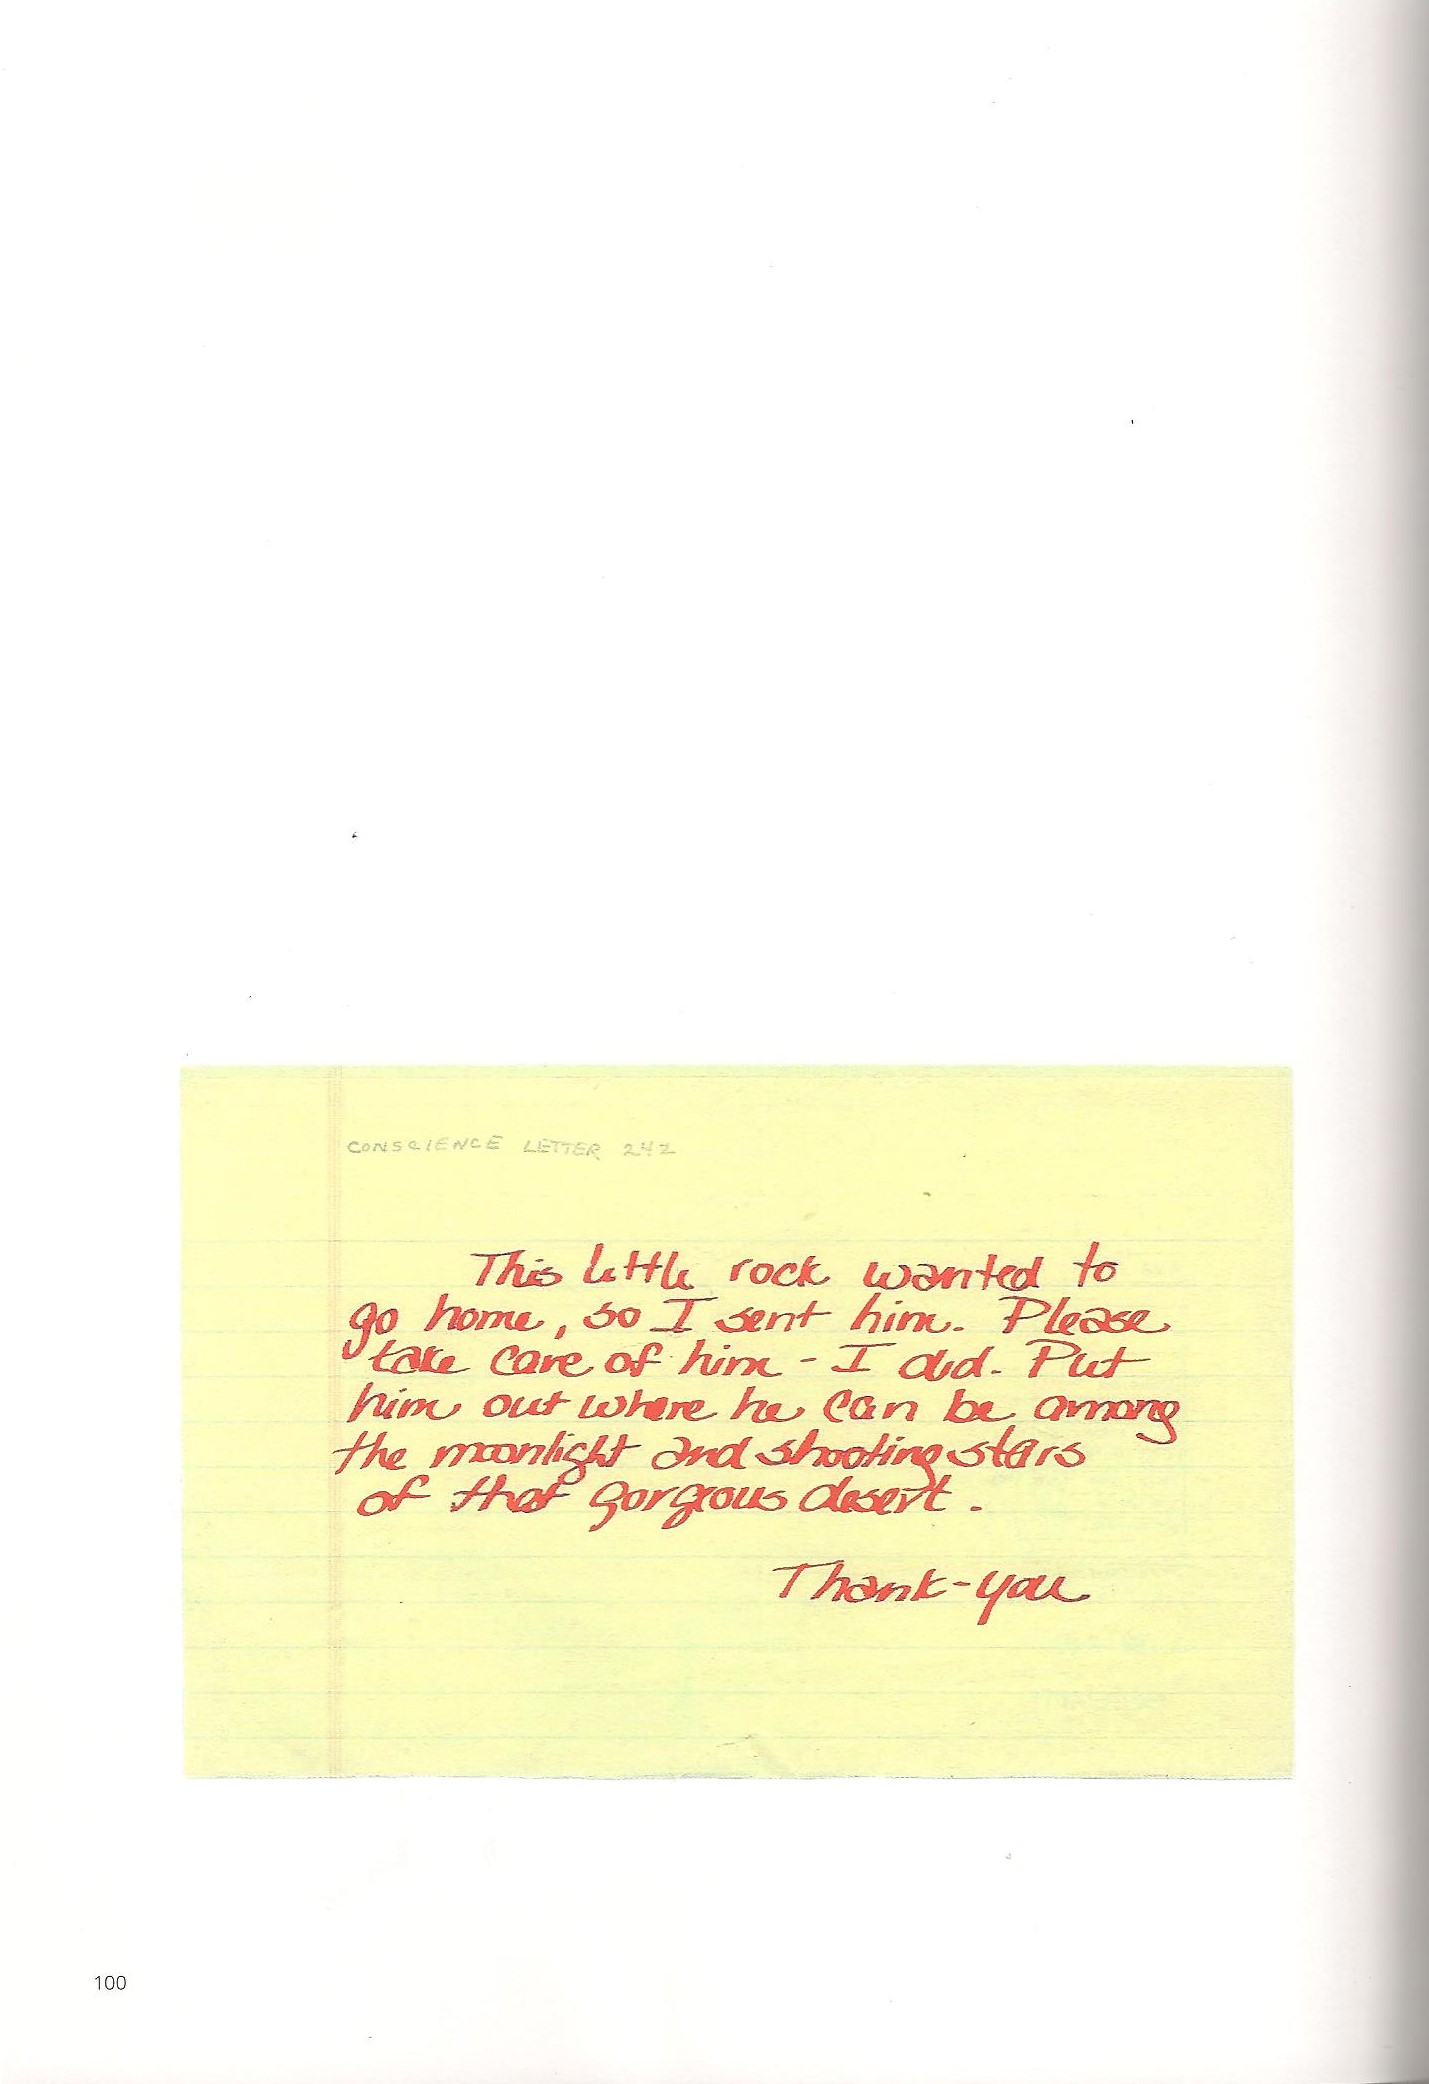 CONSCIENCE LETTER 242
This little rock wanted to
go home, so I sent him. Please
take care of him - I did. Put
him out where he can be among
the moonlight and shooting stars
of that gorgeous desert.
Thank-you
100